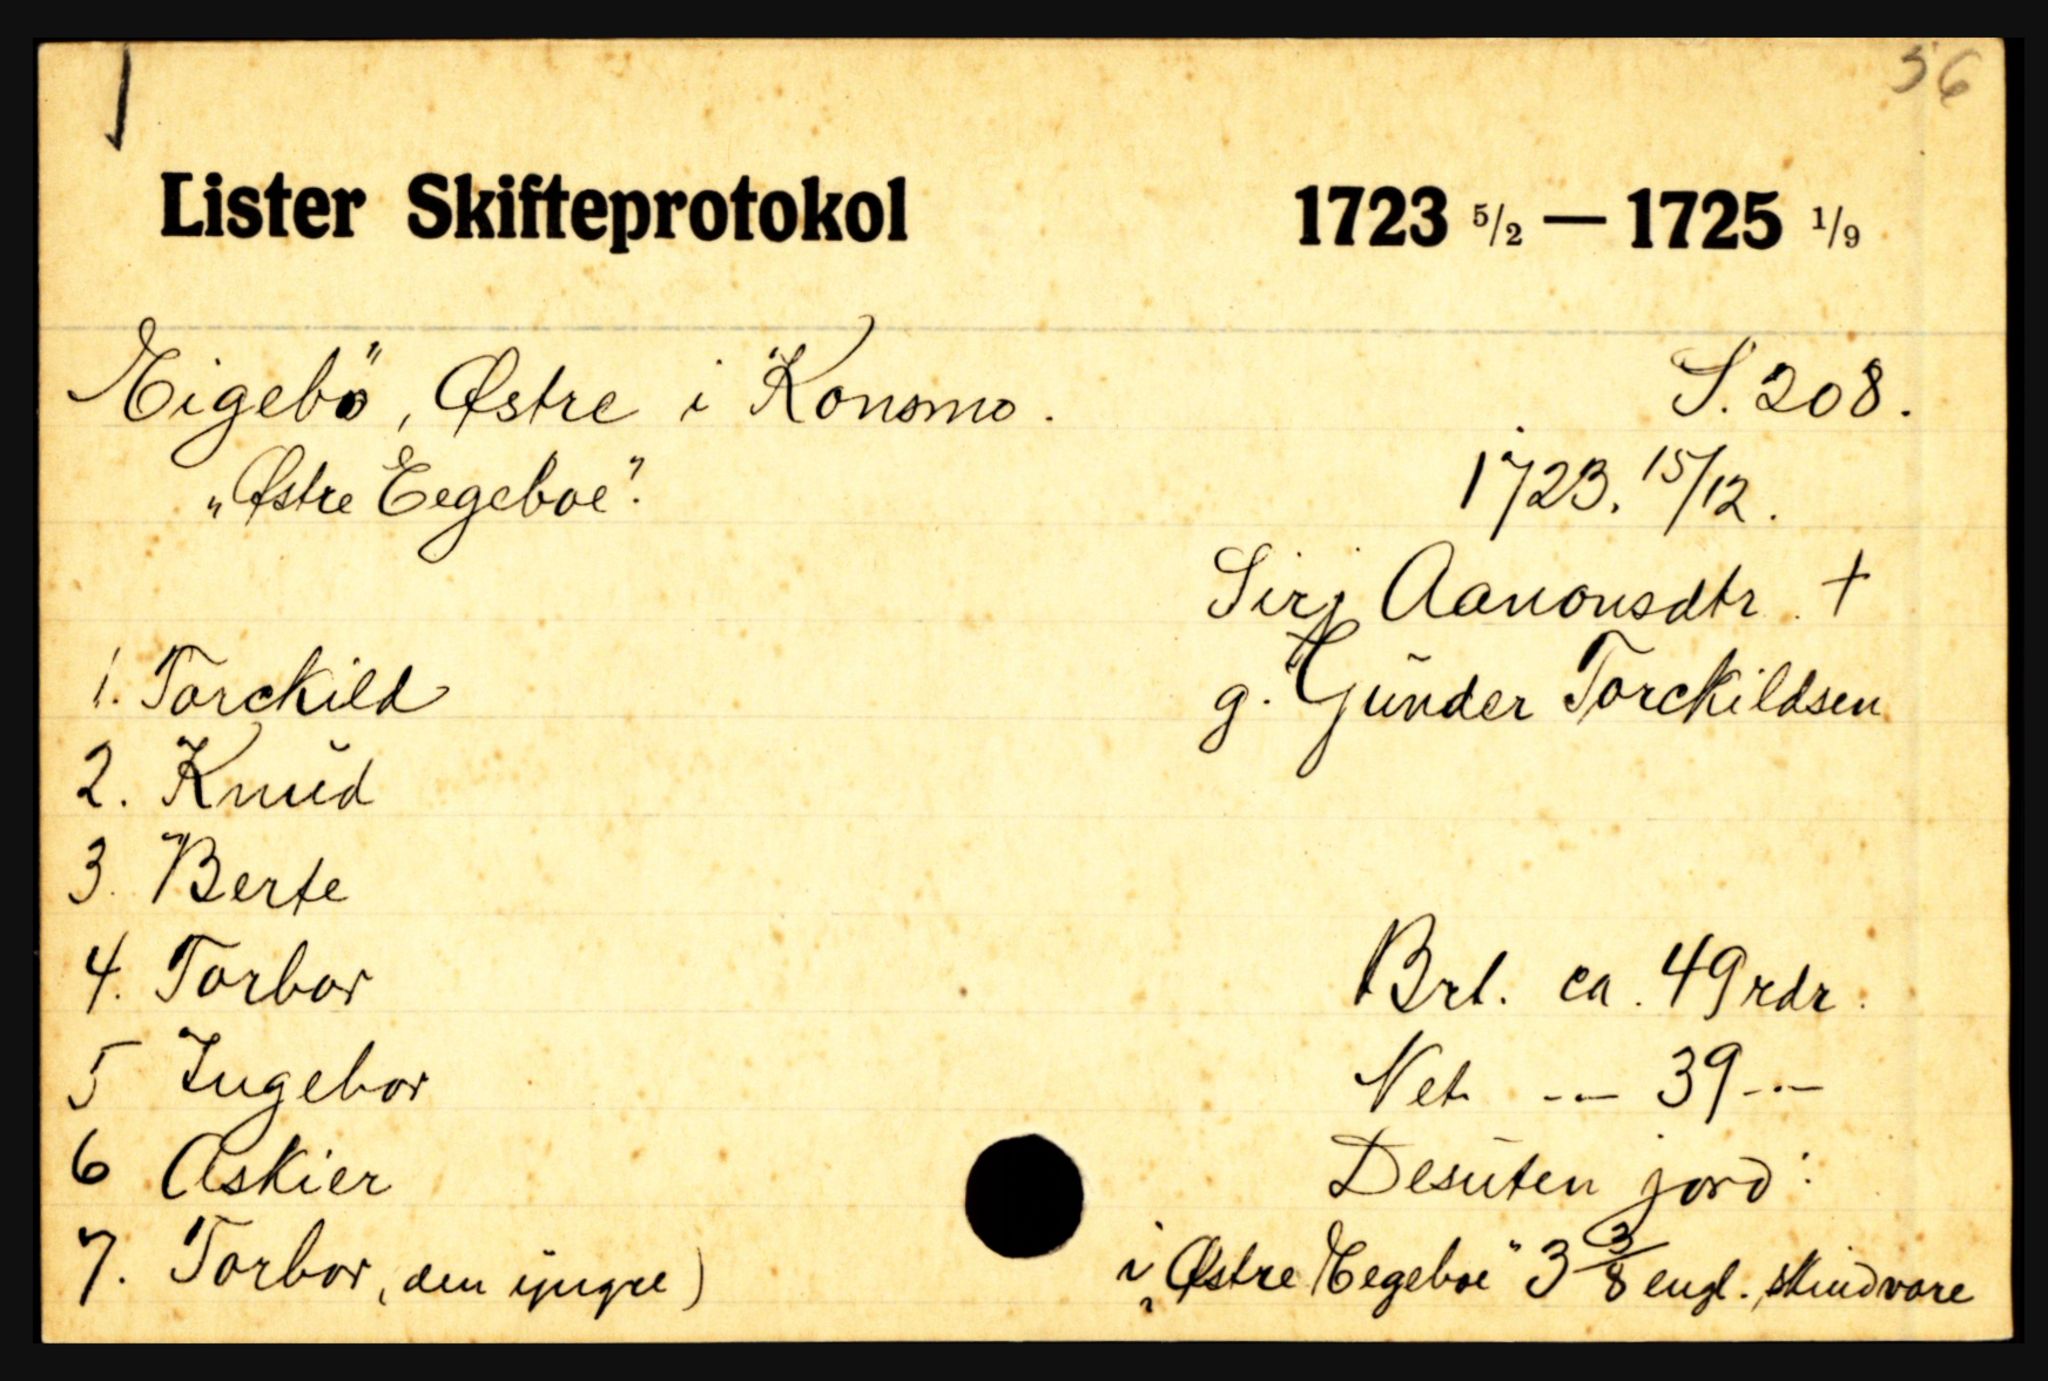 56
Lister Skifteprotokol 1723 5/2 — 1725 1/9
Eigebö, Østre i Konsmo. S. 208.
„Østre Eegeboe". 1723. 15/12.
Sirj Aanonsdtr. +
1. Torckild g. Gŭnder Torckildsen
2. Knŭd
3. Berte
4. Torbor Brt. ca. 49 rdr.
5 Ingebor Net. -- — 39 -- —
6 Askier Desŭten jord:
7. Torbor, (den ÿngre) i „Østre Eegeboe" 3 3/8 engl. skindvare